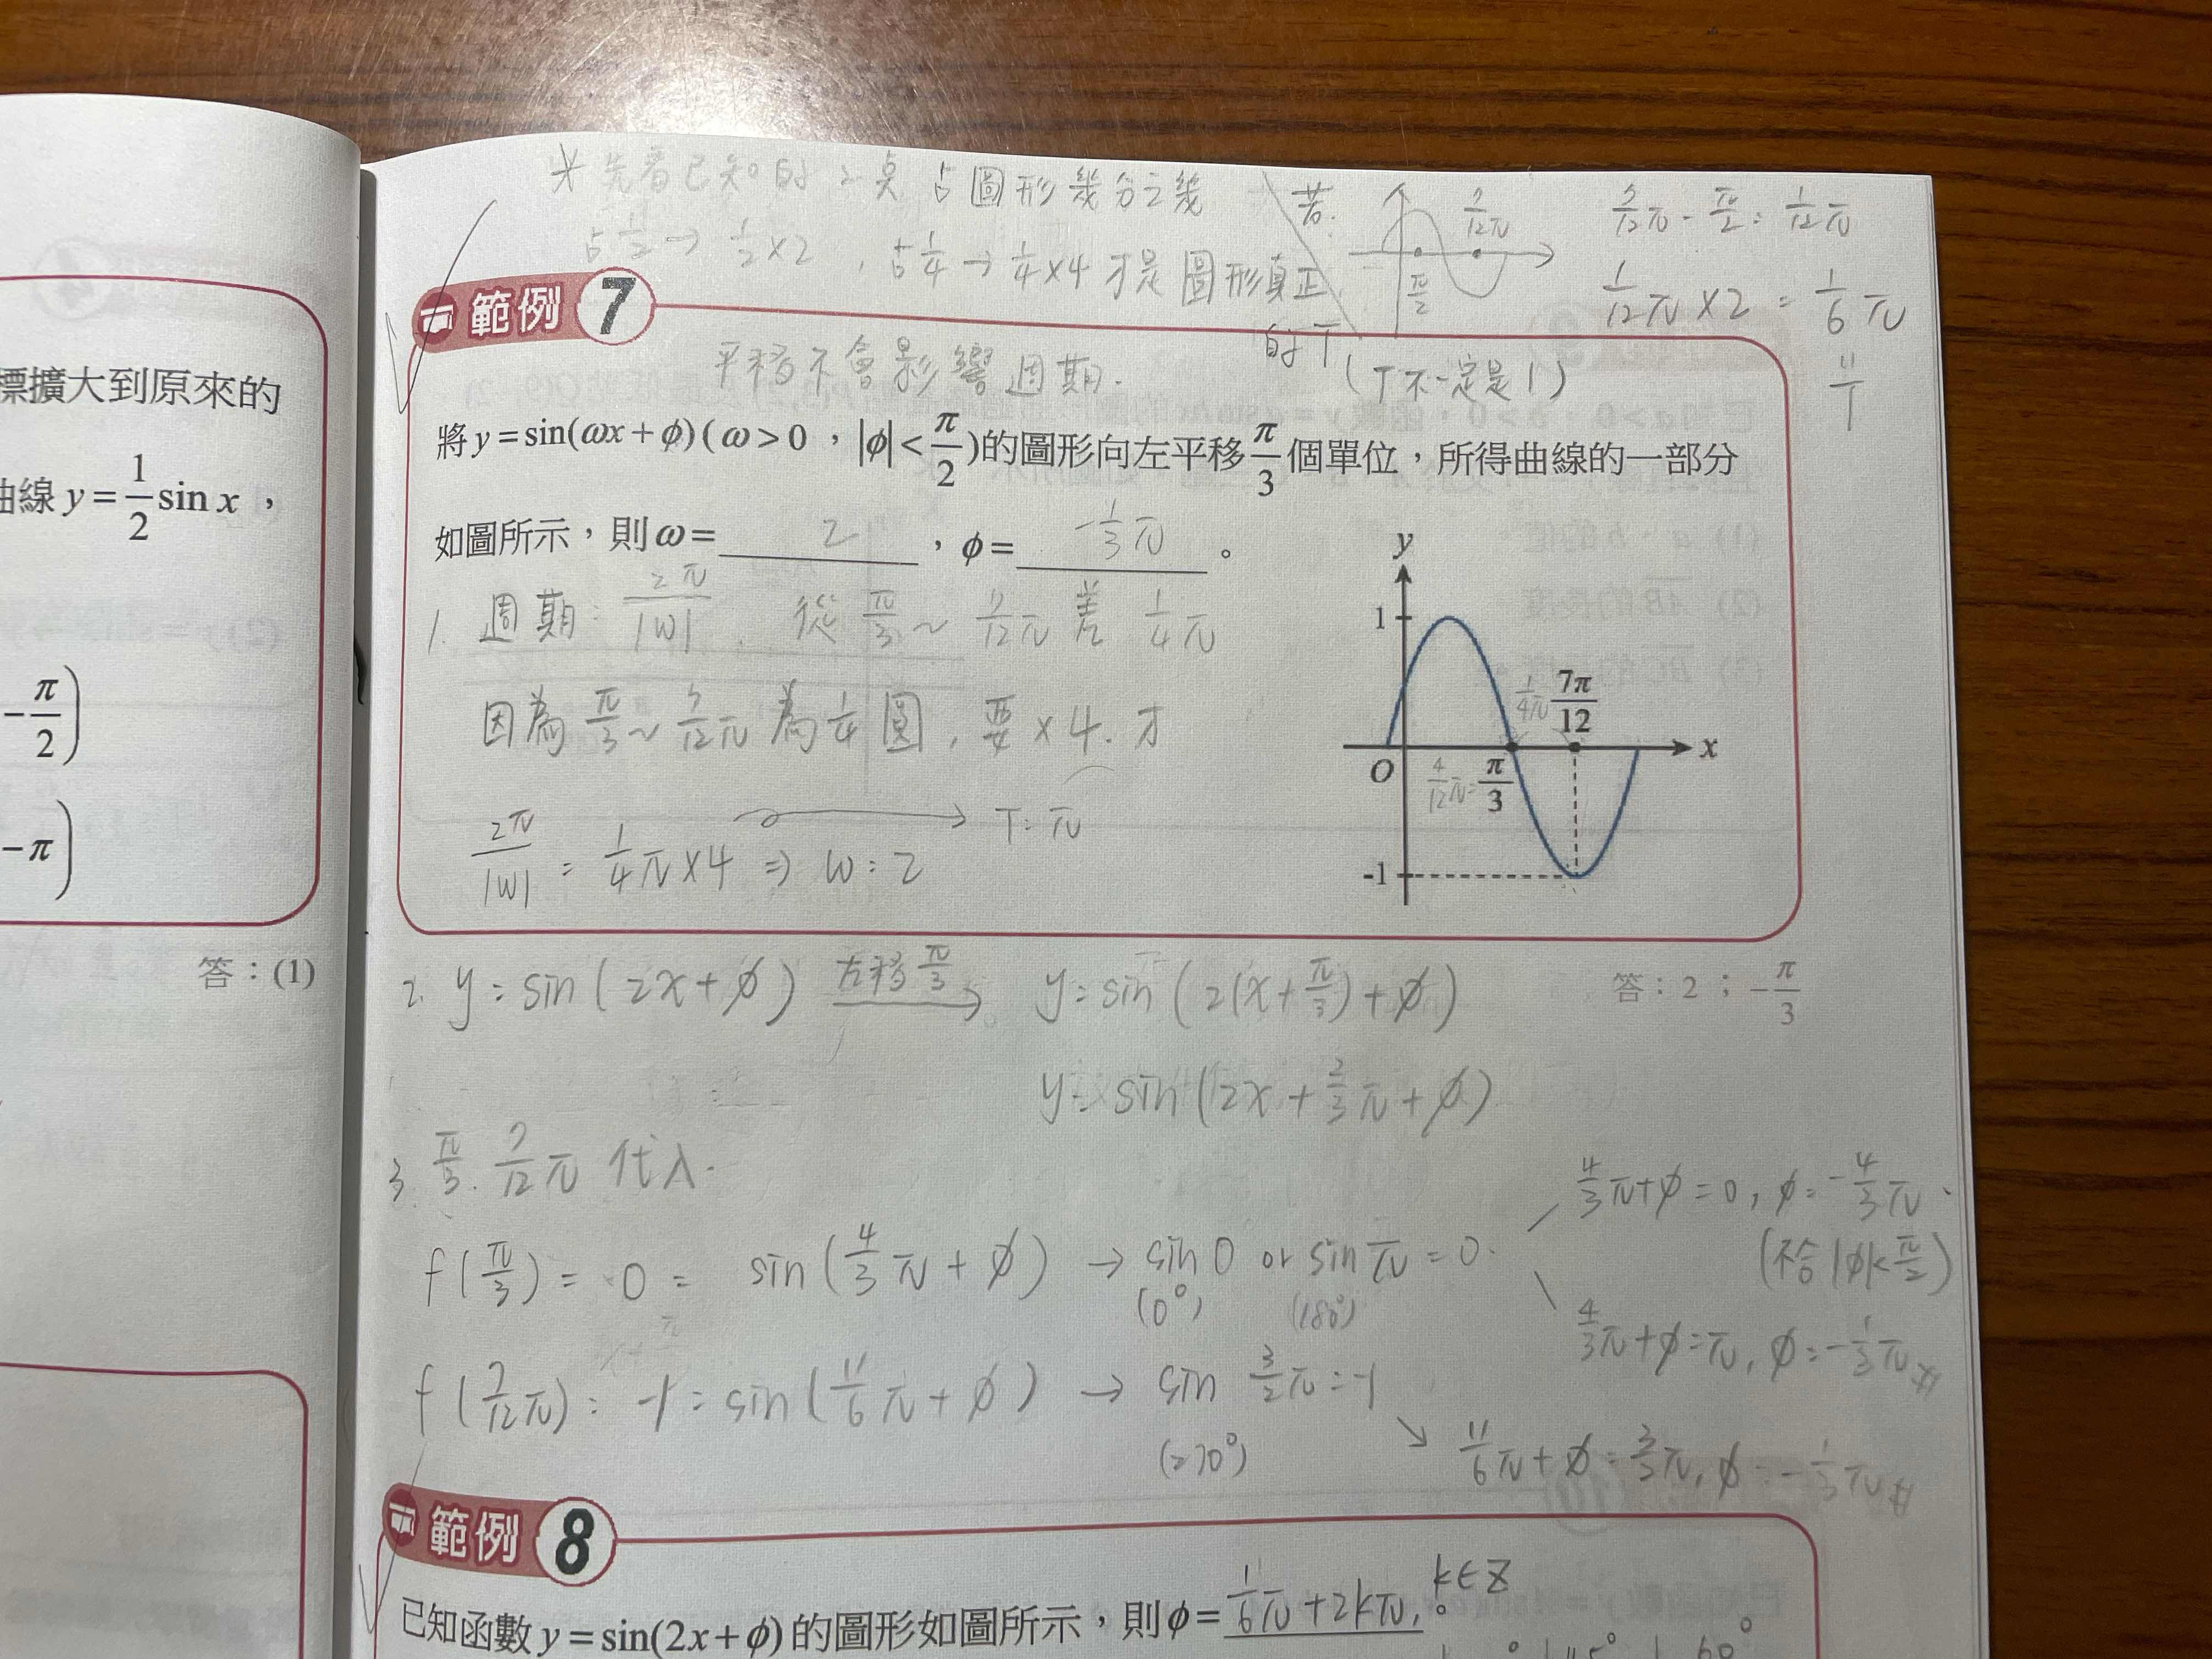 標擴大到原來的
曲線 y = 1/2 sin x，
-π/2)
-π)
答：(1)
＊先看已知的2点占圖形幾分之幾
占1/2 → 1/2×2，占1/4 → 1/4×4 才是圖形真正
的T (T不一定是1)
若:
7/12π
π/2
7/12π - π/2 = 1/12π
1/12π×2 = 1/6π
"
T
範例 7
平移不會影響週期.
將 y = sin(ωx + ϕ) (ω > 0，|ϕ| < π/2)的圖形向左平移 π/3 個單位，所得曲線的一部分
如圖所示，則 ω = 2，ϕ = -1/3π。
1. 週期: 2π/|W|. 從 π/3 ~ 7/12π 差 1/4π
因為 π/3 ~ 7/12π 為 1/4 圓，要×4. 才
2π/|W| = 1/4π×4 ⇒ W = 2
T = π
y
1
1/4π
7π/12
O
4/12π = π/3
x
-1
答：2；-π/3
2. y = sin(2x+ϕ) 左移π/3 → y = sin(2(x+π/3)+ϕ)
y = sin(2x + 2/3π + ϕ)
3. π/3. 7/12π 代入.
f(π/3) = 0 = sin(4/3π + ϕ) → sin0 or sinπ = 0.
(0°) (180°)
4/3π+ϕ = 0, ϕ = -4/3π.
(不合|ϕ|<π/2)
4/3π+ϕ = π, ϕ = -1/3π #
f(7/12π) = -1 = sin(11/6π + ϕ) → sin 3/2π = -1
(270°)
↘ 11/6π + ϕ = 3/2π, ϕ = -1/3π #
範例 8
已知函數 y = sin(2x + ϕ) 的圖形如圖所示，則 ϕ = 1/6π + 2kπ, k∈Z。